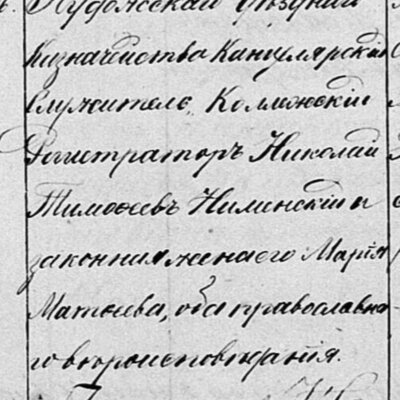 Пудожскаго уѣзднаго
Казначейства Канцелярскiй
Служитель, Коллежскiй
Регистраторъ Николай
Тимоѳеевъ Нименскiй и
законная жена его Марiя
Матѳеева, оба православна-
го вѣроисповѣданiя.